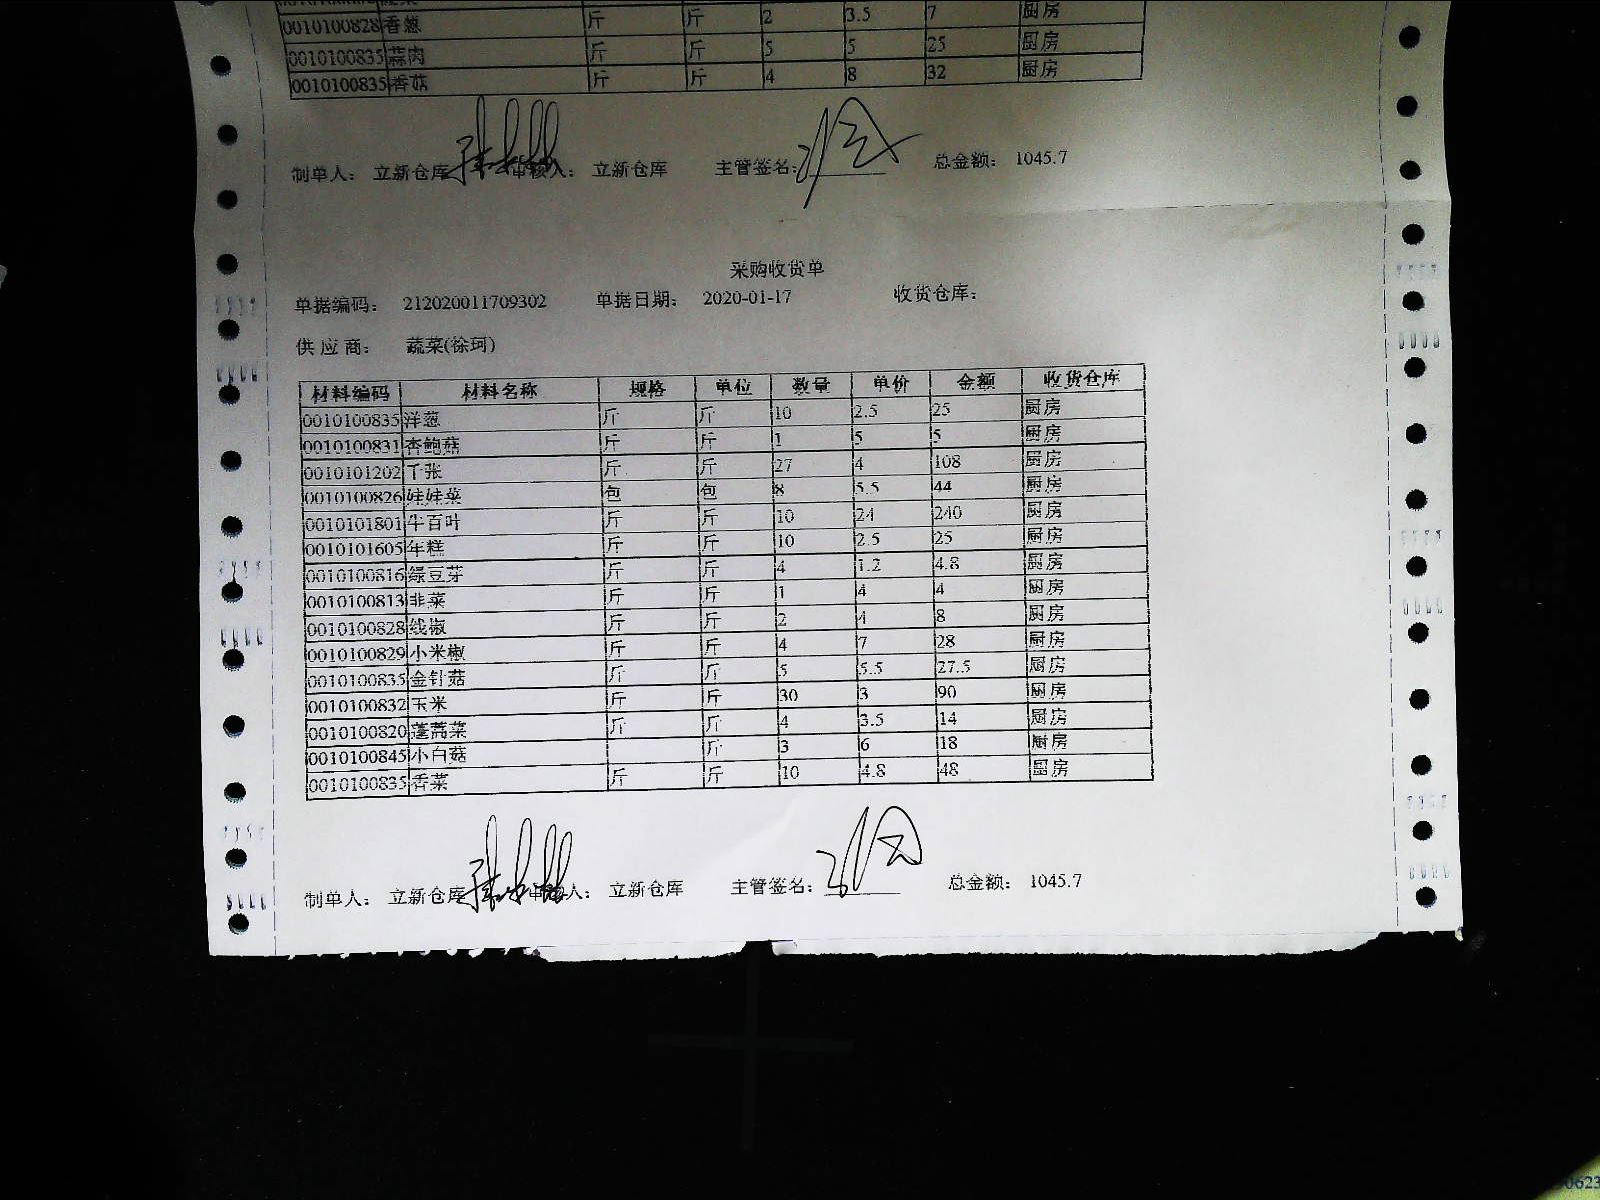 0010100828 香葱 斤 斤 2 3.5 7 厨房
0010100835 蒜肉 斤 斤 5 5 25 厨房
0010100835 香菇 斤 斤 4 8 32 厨房
制单人： 立新仓库 审核人： 立新仓库 主管签名： 总金额： 1045.7
采购收货单
单据编码： 212020011709302 单据日期： 2020-01-17 收货仓库：
供 应 商： 蔬菜(徐珂)
材料编码 材料名称 规格 单位 数量 单价 金额 收货仓库
0010100835 洋葱 斤 斤 10 2.5 25 厨房
0010100831 杏鲍菇 斤 斤 1 5 5 厨房
0010101202 千张 斤 斤 27 4 108 厨房
0010100826 娃娃菜 包 包 8 5.5 44 厨房
0010101801 牛百叶 斤 斤 10 24 240 厨房
0010101605 年糕 斤 斤 10 2.5 25 厨房
0010100816 绿豆芽 斤 斤 4 1.2 4.8 厨房
0010100813 韭菜 斤 斤 1 4 4 厨房
0010100828 线椒 斤 斤 2 4 8 厨房
0010100829 小米椒 斤 斤 4 7 28 厨房
0010100835 金针菇 斤 斤 5 5.5 27.5 厨房
0010100832 玉米 斤 斤 30 3 90 厨房
0010100820 蓬蒿菜 斤 斤 4 3.5 14 厨房
0010100845 小白菇 斤 3 6 18 厨房
0010100835 香菜 斤 斤 10 4.8 48 厨房
制单人： 立新仓库 审核人： 立新仓库 主管签名： 总金额： 1045.7